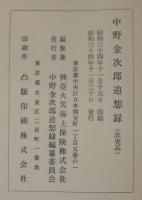 中野金次郎追想録 (非売品)
昭和三十四年十一月十五日 印刷
昭和三十四年十一月二十日 発行
東京都中央区日本橋室町一丁目五番の一
編集兼 興亜火災海上保険株式会社
発行者 中野金次郎追想録編纂委員会
東京都台東区二長町一番地
印刷所 凸版印刷株式会社